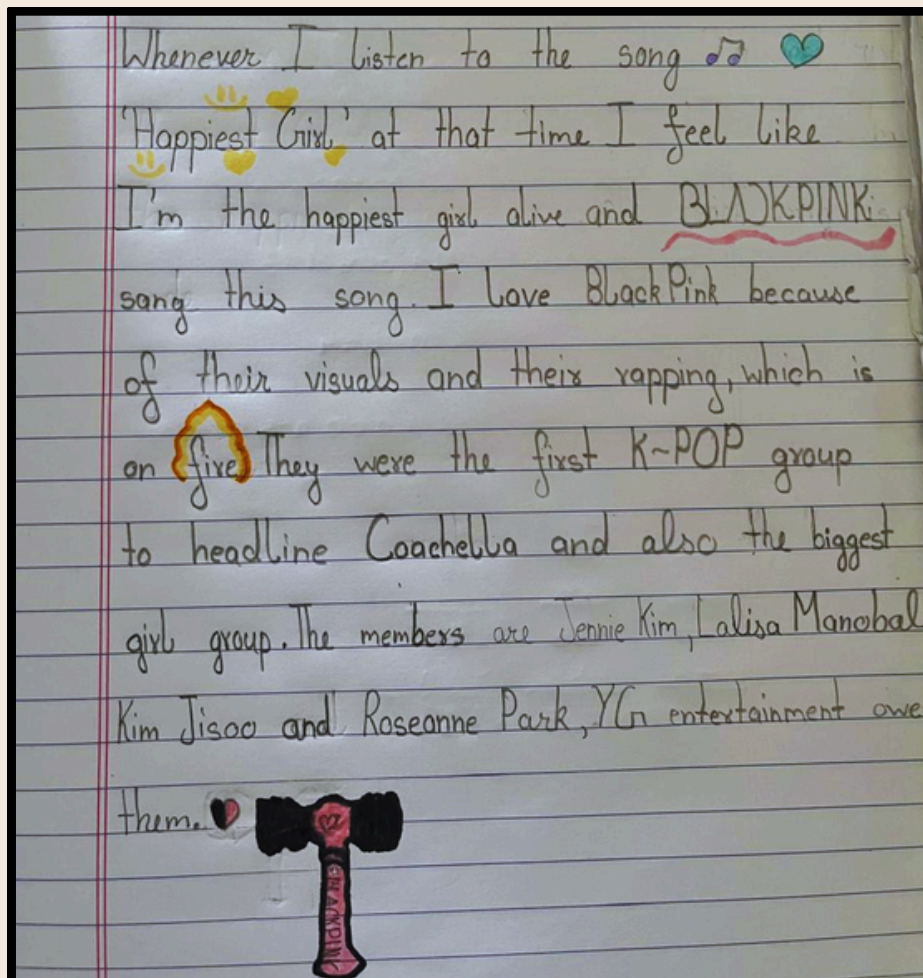 Whenever I listen to the song
'Happiest Girl' at that time I feel like
I'm the happiest girl alive and BLACKPINK
sang this song. I love BlackPink because
of their visuals and their rapping, which is
on fire They were the first K-POP group
to headline Coachella and also the biggest
girl group. The members are Jennie Kim, Lalisa Manobal
Kim Jisoo and Roseanne Park, YG entertainment owe
them.
BLACKPINK